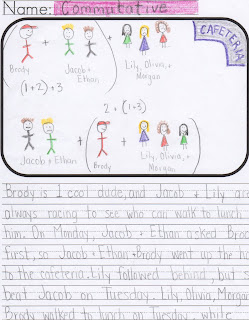 Name: Commutative
CAFETERIA
Brody
Jacob + Ethan
Lily, Olivia, + Morgan
(1+2)+3
2+(1+3)
Jacob + Ethan
Brody
Lily, Olivia, + Morgan
Brody is 1 cool dude, and Jacob + Lily are
always racing to see who can walk to lunch
him. On Monday, Jacob + Ethan asked Brody
first, so Jacob + Ethan + Brody went up the ha
to the cafeteria. Lily followed behind, but s
beat Jacob on Tuesday. Lily, Olivia, Morgan
Brody walked to lunch on Tuesday, while